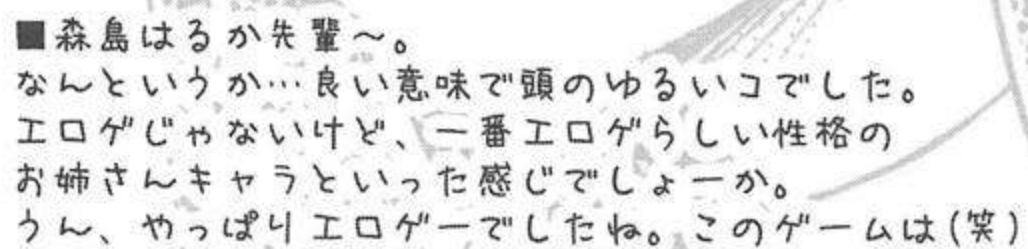 ■森島はるか先輩～。
なんというか…良い意味で頭のゆるいコでした。
エロゲじゃないけど、一番エロゲらしい性格の
お姉さんキャラといった感じでしょーか。
うん、やっぱりエロゲーでしたね。このゲームは(笑)